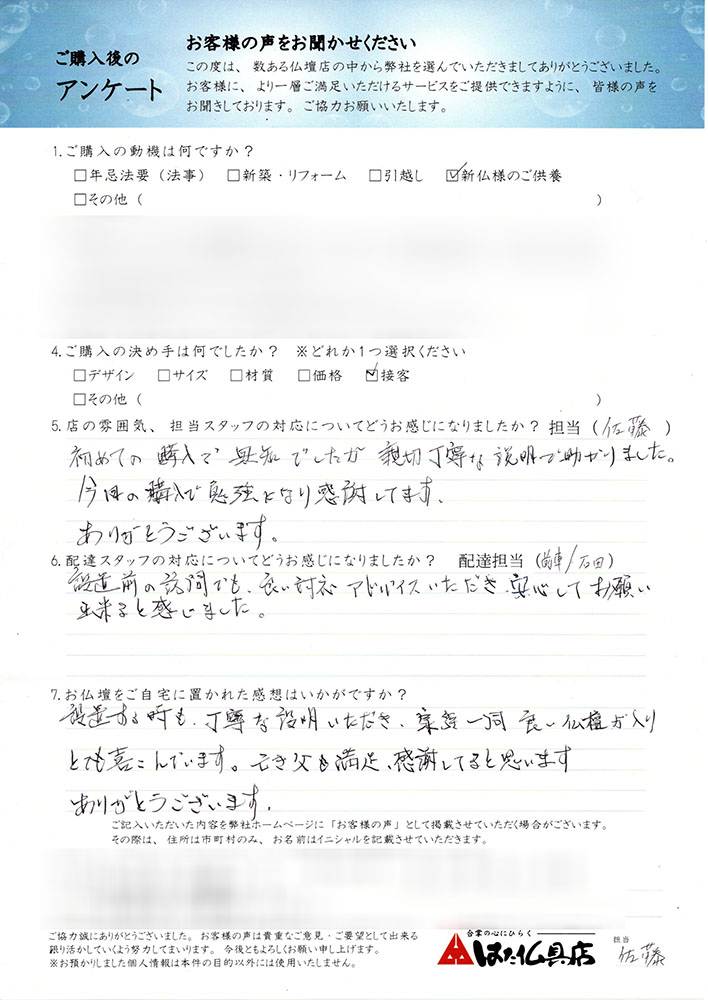 ご購入後の
アンケート
お客様の声をお聞かせください
この度は、数ある仏壇店の中から弊社を選んでいただきましてありがとうございました。
お客様に、より一層ご満足いただけるサービスをご提供できますように、皆様の声を
お聞きしております。ご協力お願いいたします。
1.ご購入の動機は何ですか？
□年忌法要（法事） □新築・リフォーム □引越し ☑新仏様のご供養
□その他（ ）
4.ご購入の決め手は何でしたか？ ※どれか1つ選択ください
□デザイン □サイズ □材質 □価格 ☑接客
□その他（ ）
5.店の雰囲気、担当スタッフの対応についてどうお感じになりましたか？担当（佐藤）
初めての購入で無知でしたが親切丁寧な説明で助かりました。
今回の購入で勉強となり感謝してます、
ありがとうございます。
6.配達スタッフの対応についてどうお感じになりましたか？ 配達担当（ /石田）
設置前の訪問でも、良い対応アドバイスいただき安心してお願い
出来ると感じました。
7.お仏壇をご自宅に置かれた感想はいかがですか？
設置する時も、丁寧な説明いただき、家族一同良い仏壇が入り
とても喜こんでいます。亡き父も満足、感謝してると思います
ありがとうございます。
ご記入いただいた内容を弊社ホームページに「お客様の声」として掲載させていただく場合がございます。
その際は、住所は市町村のみ、お名前はイニシャルを記載させていただきます。
ご協力誠にありがとうございました。お客様の声は貴重なご意見・ご要望として出来る
限り活かしていくよう努力してまいります。今後ともよろしくお願い申し上げます。
※お預かりしました個人情報は本件の目的以外には使用いたしません。
合掌の心にひらく
はた仏具店
担当
佐藤